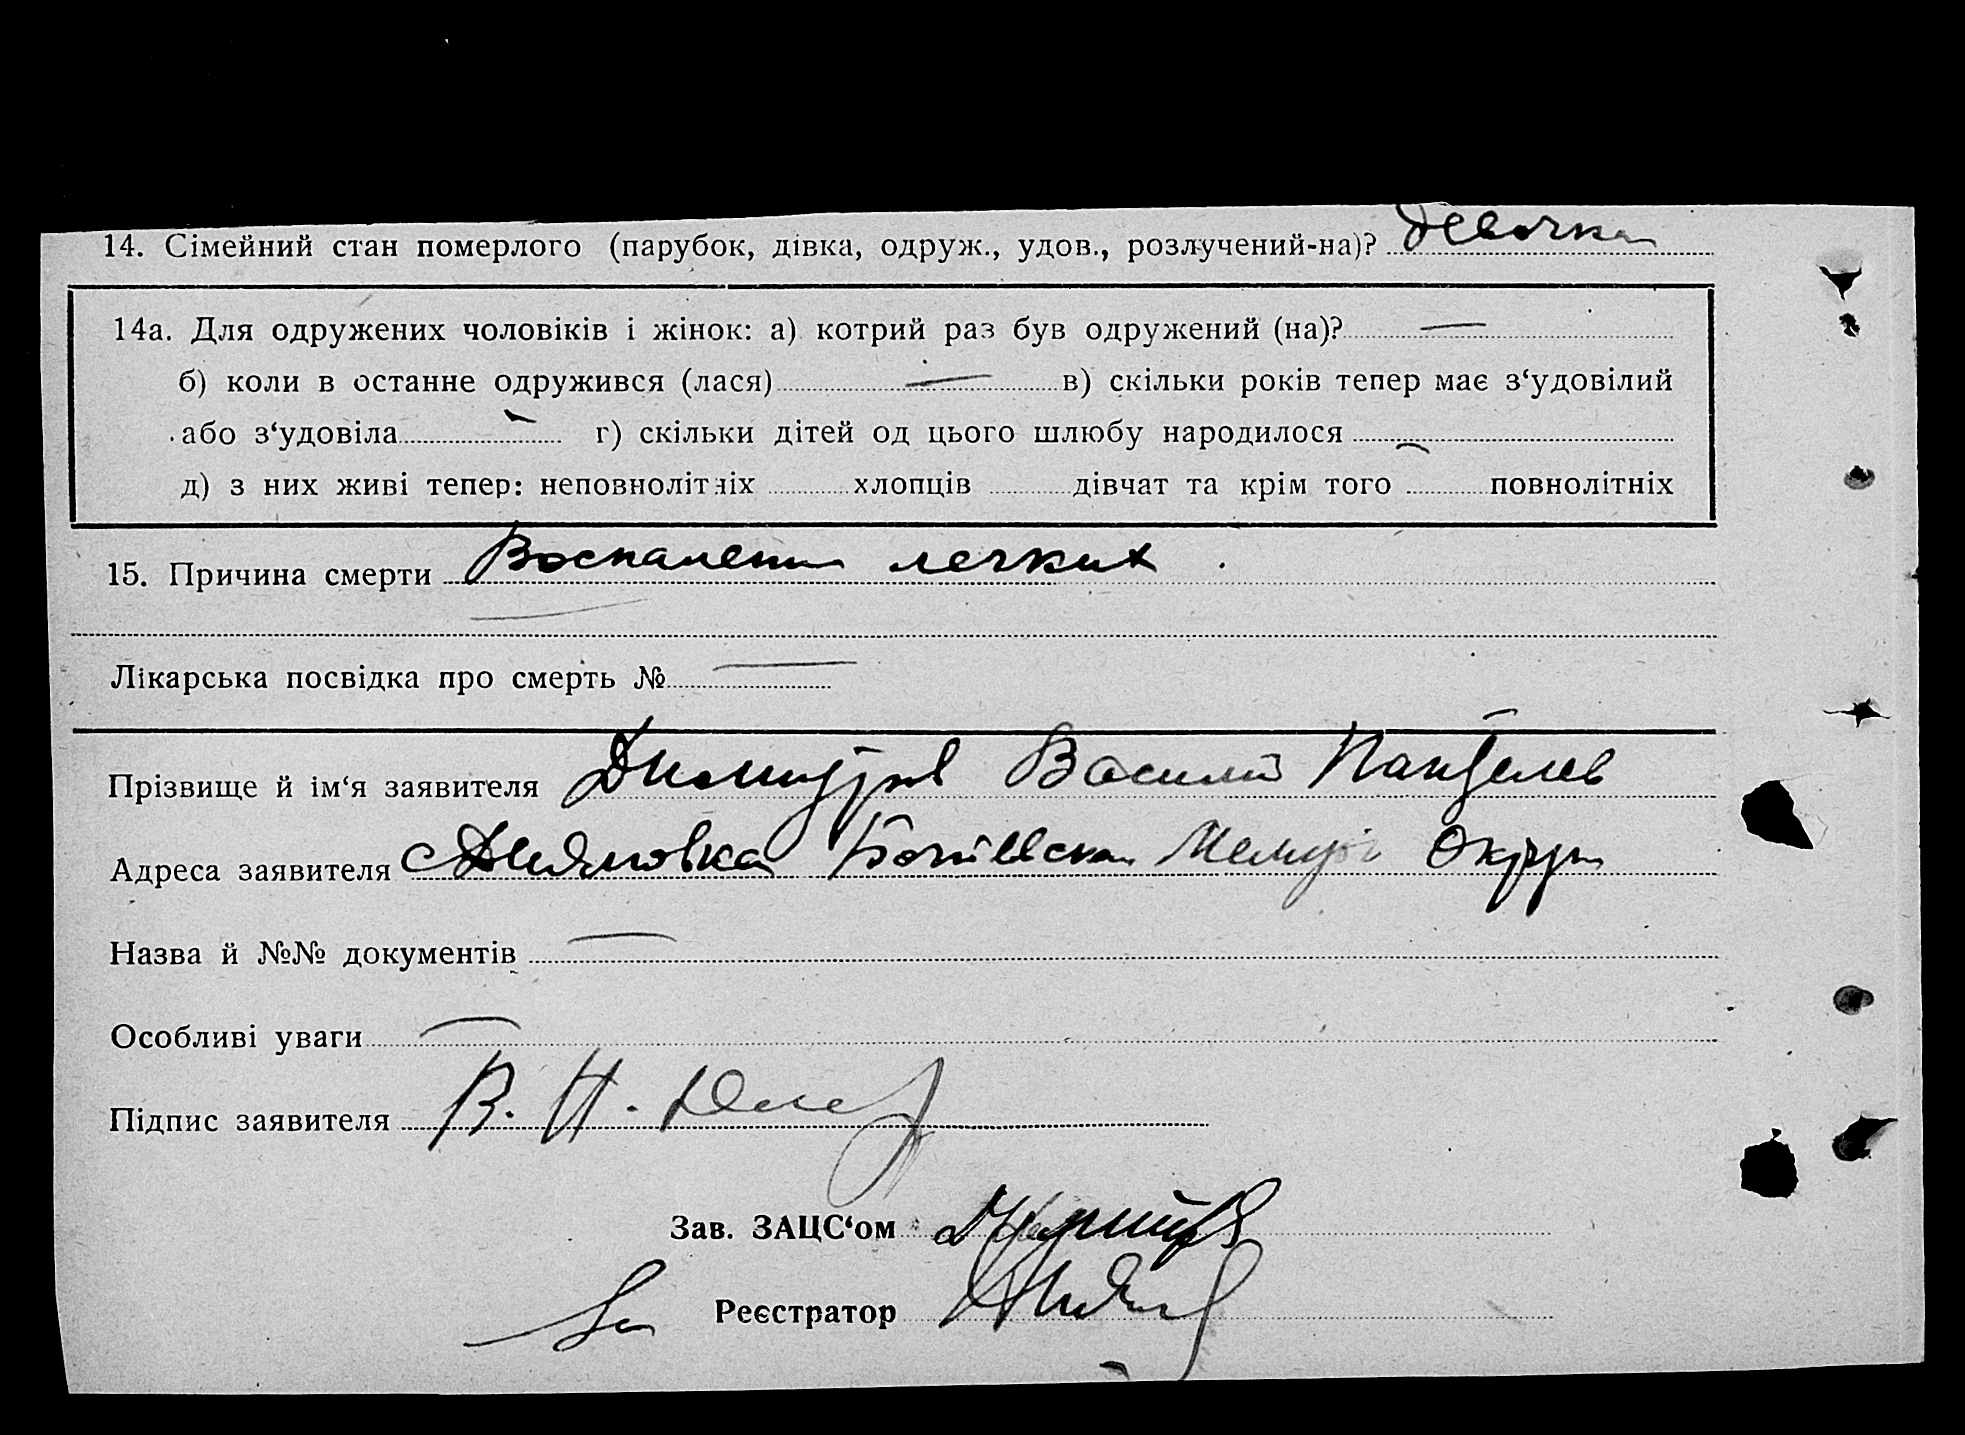 14. Сімейний стан померлого (парубок, дівка, одруж., удов., розлучений-на)? девочка
14а. Для одружених чоловіків і жінок: а) котрий раз був одружений (на)? —
б) коли в останне одружився (лася) — в) скільки років тепер має з‘удовілий
або з‘удовіла — г) скільки дітей од цього шлюбу народилося —
д) з них живі тепер: неповнолітніх хлопців дівчат та крім того повнолітніх
15. Причина смерти Воспалени легких
Лікарська посвідка про смерть № —
Прізвище й ім‘я заявителя Василий Пантелев
Адреса заявителя Округ
Назва й №№ документів —
Особливі уваги —
Підпис заявителя В. П.
Зав. ЗАЦС‘ом
Реєстратор